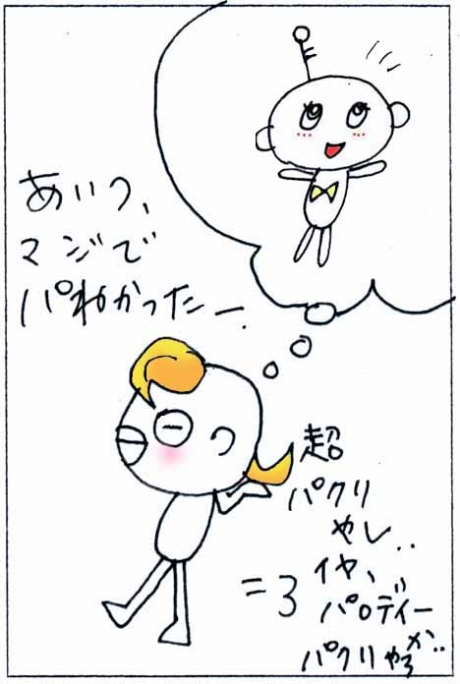 あいつ、
マジで
パねかったー.
超
パクリ
やし..
イヤ、
パロディー
パクリやろ
か..